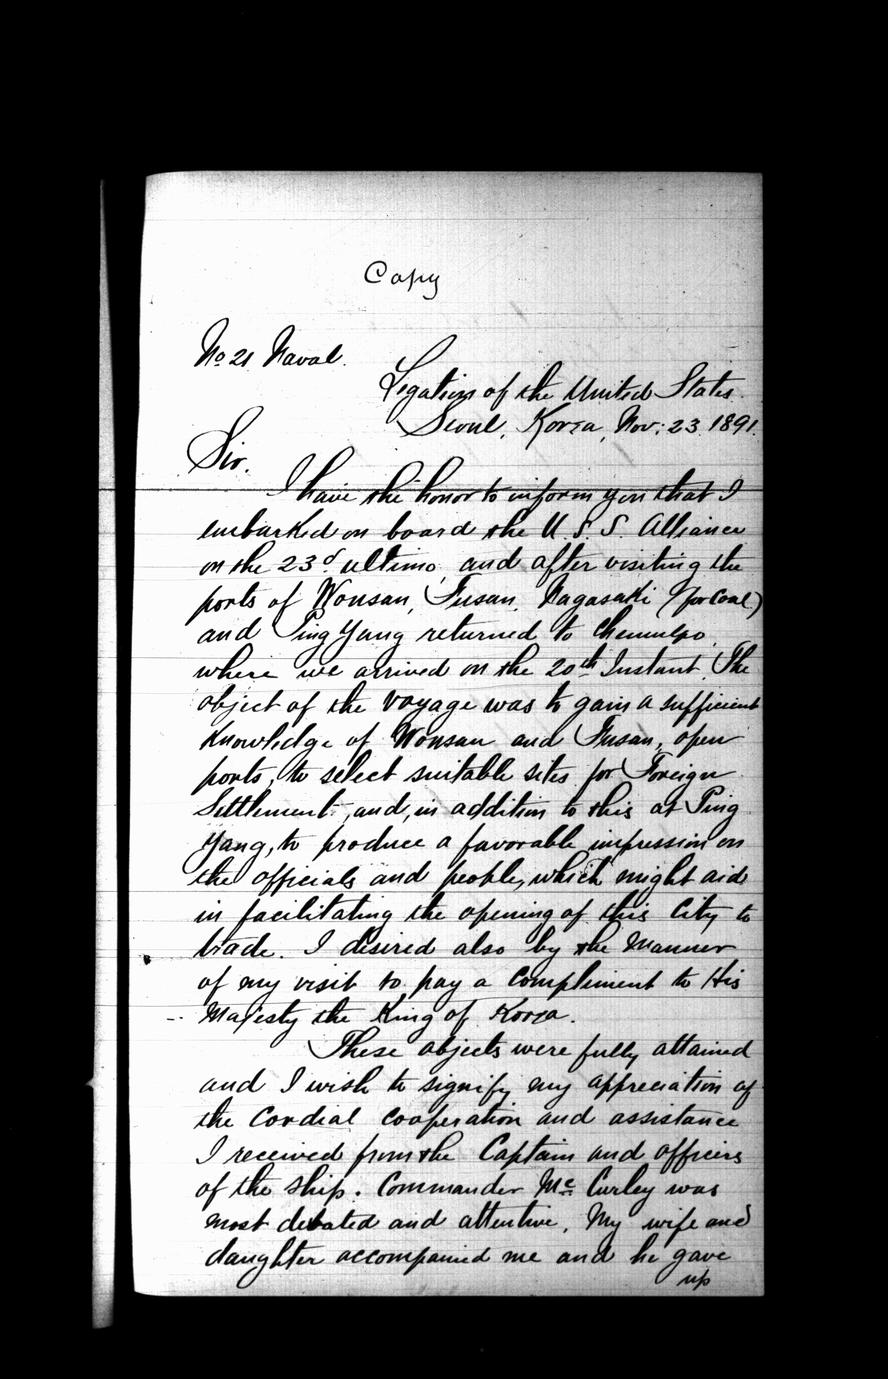 Copy
No 21 Naval.
Legation of the United States.
Seoul, Korea, Nov: 23. 1891.
Sir.
I have the honor to inform you that I
embarked on board the U.S.S. Alliance
on the 23d ultimo, and after visiting the
ports of Wonsan, Fusan, Nagasaki (for coal)
and Ping Yang returned to Chemulpo,
where we arrived on the 20th Instant. The
object of the voyage was to gain a sufficient
knowledge of Wonsan and Fusan, open
ports, to select suitable sites for Foreign
Settlement, and, in addition to this at Ping
Yang, to produce a favorable impression on
the officials and people, which might aid
in facilitating the opening of this City to
trade. I desired also by the manner
of my visit to pay a compliment to His
Majesty the King of Korea.
These objects were fully attained
and I wish to signify my appreciation of
the cordial cooperation and assistance
I received from the Captain and officers
of the ship. Commander Mc Curley was
most devoted and attentive. My wife and
daughter accompanied me and he gave
up